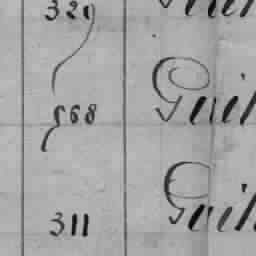 329
568 Guil
311 Guil